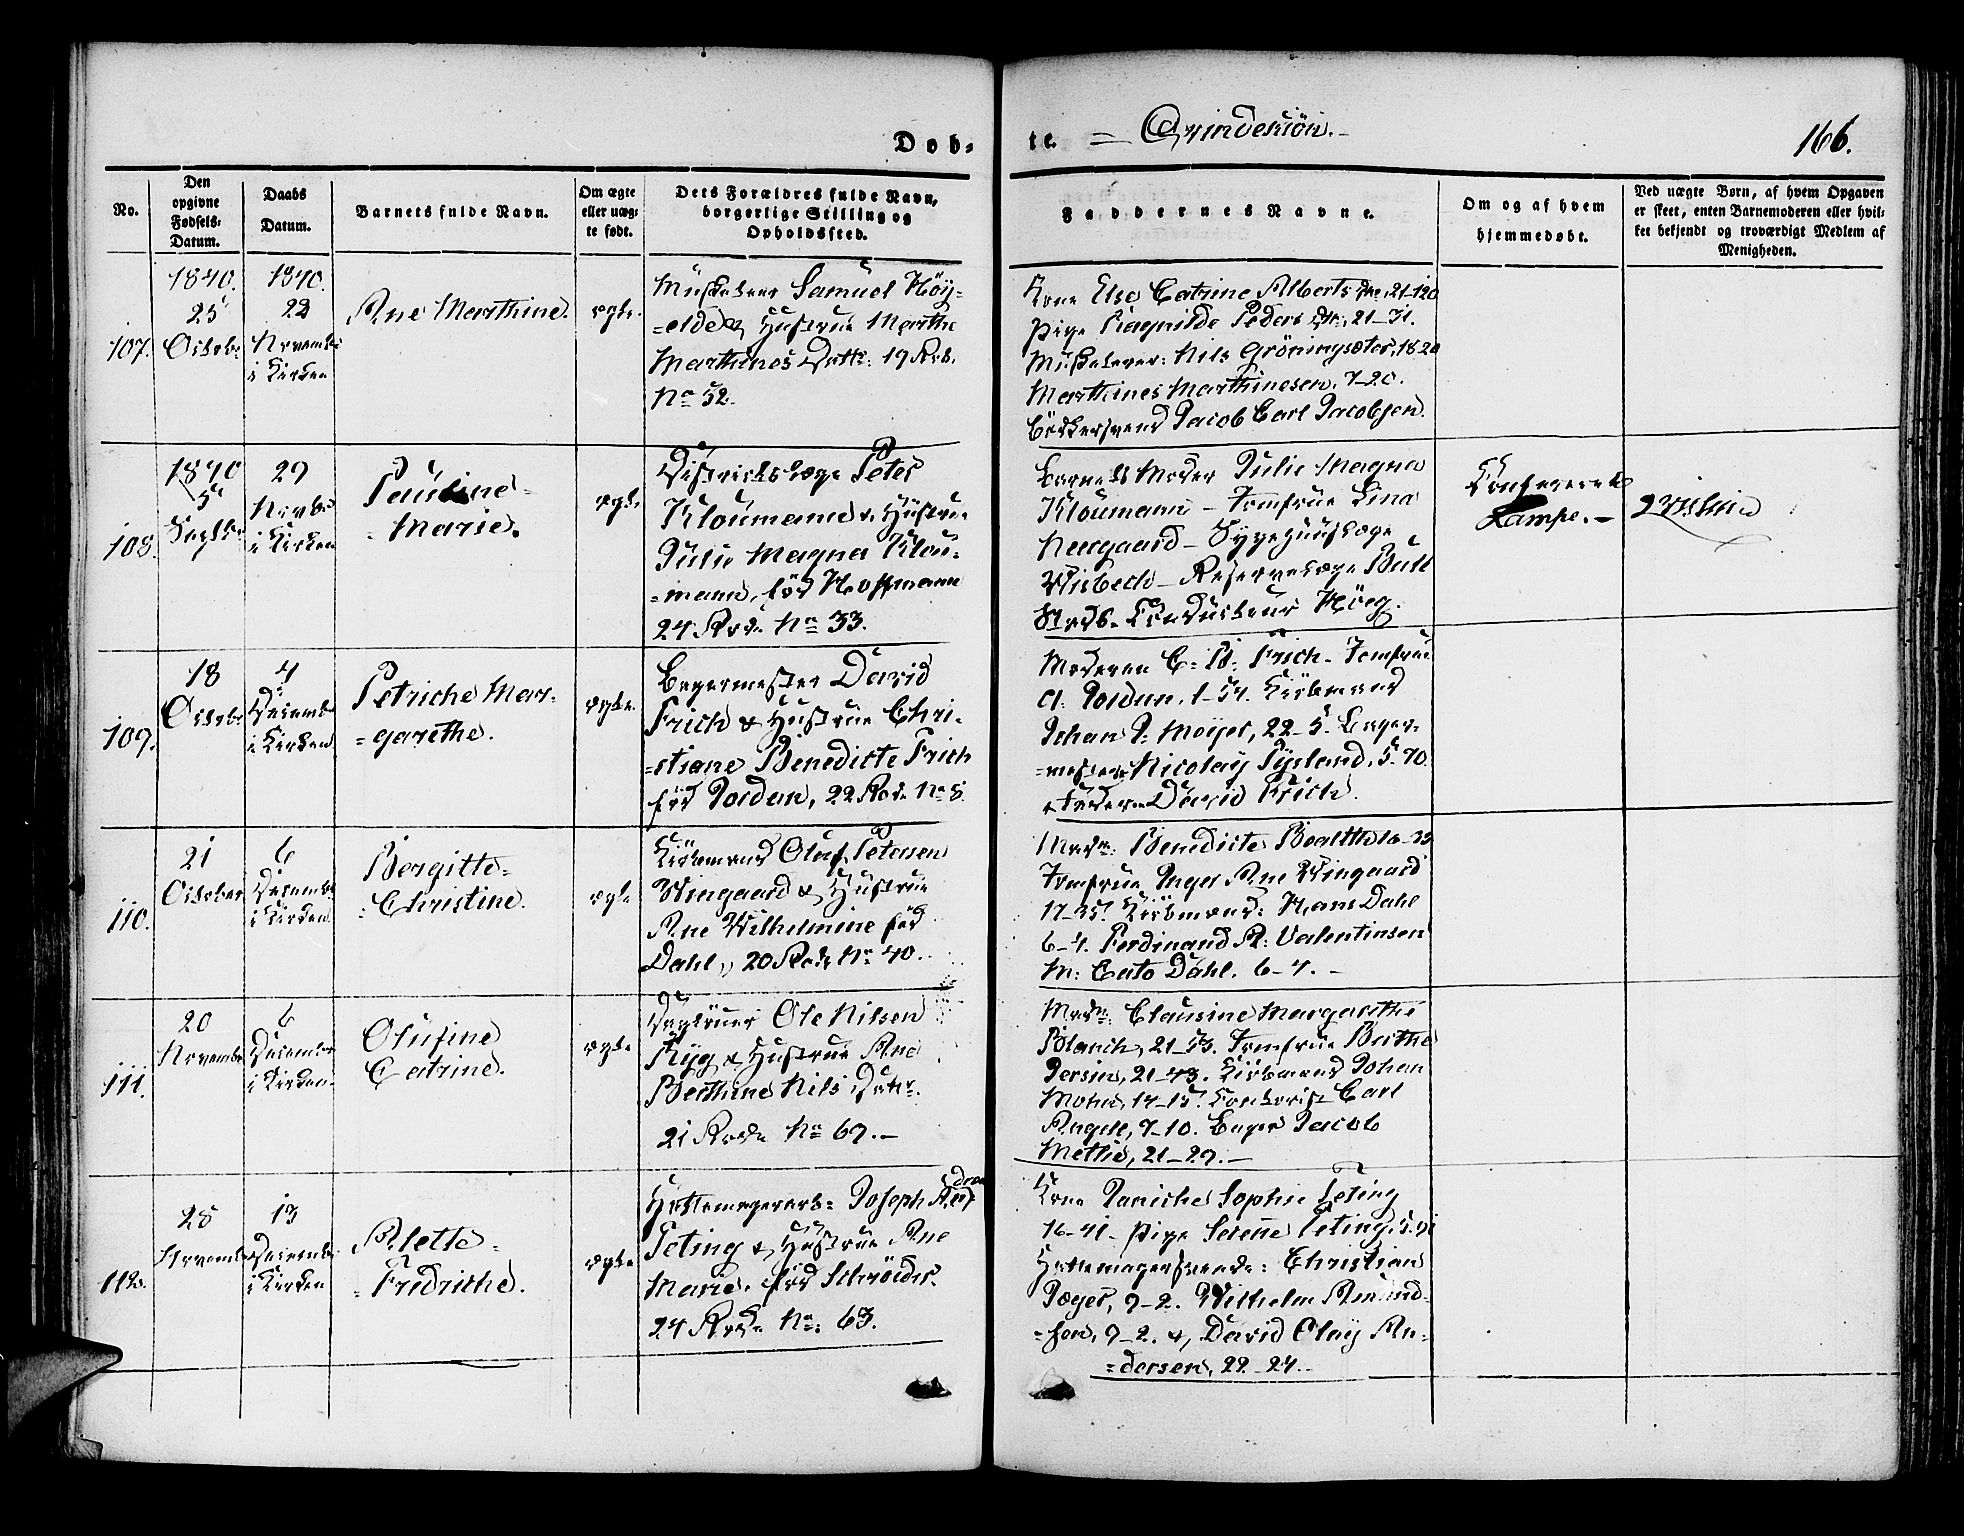 Døb-
te. = Qvindekiøn. -
166.
No.
Den opgivne Fødsels-Datum.
Daabs Datum.
Barnets fulde Navn.
Om ægte eller uæg-te født.
Dets Forældres fulde Navn, borgerlige Stilling og Opholdssted.
Faddernes Navne.
Om og af hvem hjemmedøbt.
Ved uægte Børn, af hvem Opgaven er skeet, enten Barnemoderen eller hvil-ket bekjendt og troværdigt Medlem af Menigheden.
107.
1840.
25
Octobr
1840.
22
Novembr
i Kirken
Ane Marthine.
ægte.
Musketeer Samuel Höy-
=elde & Hustrue Marthe
Marthines Dattr: 19 Rod.
No 52.
Kone Else Catrine Alberts Dr., 21-120
Pige Ragnilde Peders Dr., 21-31.
Musketerer: Nils Gröningsæter, 1820
Marthines Marthinesen, 7-20.
Bödkersvend Jacob Carl Jacobsen.
108.
1840
5
Septbr
29
Novbr
i Kirken
Pauline=
=Marie.
ægte.
Districtslæge Peter
Kloumann & Hustrue
Julie Magna Klou-
=mann, föd Hoffmann
24 Rode No 33.
Barnets Moder Julie Magna
Kloumann - Jomfrue Lina
Neergaard - Sygehuuslæge
Wisbech - Reservelæge Bull
Stads-Conducteur Höeg.
Confererede
Lampe. -
109.
18
Octobr
4
Decembr
i Kirken
Petriche Mar-
=garethe.
ægte.
Bagermester David
Frich & Hustrue Chri-
=stiane Benedicte Frich
föd Jordan, 22 Rode No 5.
Moderen C: B: Frich - Jomfrue
A: Jordan, 1-54. Kiöbmand
Johan J: Meÿer, 22-5. Bager-
=mester Nicolaÿ Tÿsland, 5-70.
& Faderen David Frich.
110.
21
October
6
Decembr
i Kirken
Bergitte=
=Christine.
ægte
Kiöbmand Oluf Petersen
Wingaard & Hustrue
Ane Wilhelmine föd
Dahl, 20 Rode No 40.
Madm: Benedicte
Jomfrue Inger Ane Wingaard
17-35. Kiöbmænd: Hans Dahl
6-4. Ferdinand R: Valentinsen
M: Cato Dahl. 6-4. -
111.
20
Novembr
6
Decembr
i Kirken
Olufine
Catrine.
ægte
Ole Nilsen
Ryg & Hustrue Ane
Berthine Nils Datter.
21 Rode No 69. -
Madm: Clausine Margarethe
Blanch, 21-53. Jomfrue Berthe
Jersin, 21-43. Kiöbmand Johan
Mohn, 14-15. Contorist Carl
Angell, 7-10. Bager Jacob
Methie, 21-29. -
112.
28
Novembr
13
Decembr
i Kirken
Alette=
=Fredriche.
ægte
Hattemagersv= Joseph And
Teting & Hustrue Ane
Marie, föd Schröder.
24 Rode No: 63.
Kone Janiche Sophie Teting
16-41. Pige Serene Teting, 5-91
Hattemagersvende: Christian
Jæger, 9-2. Wilhelm Amund-
=sen, 9-2. &, David Olaÿ An-
=dersen, 22-24. -